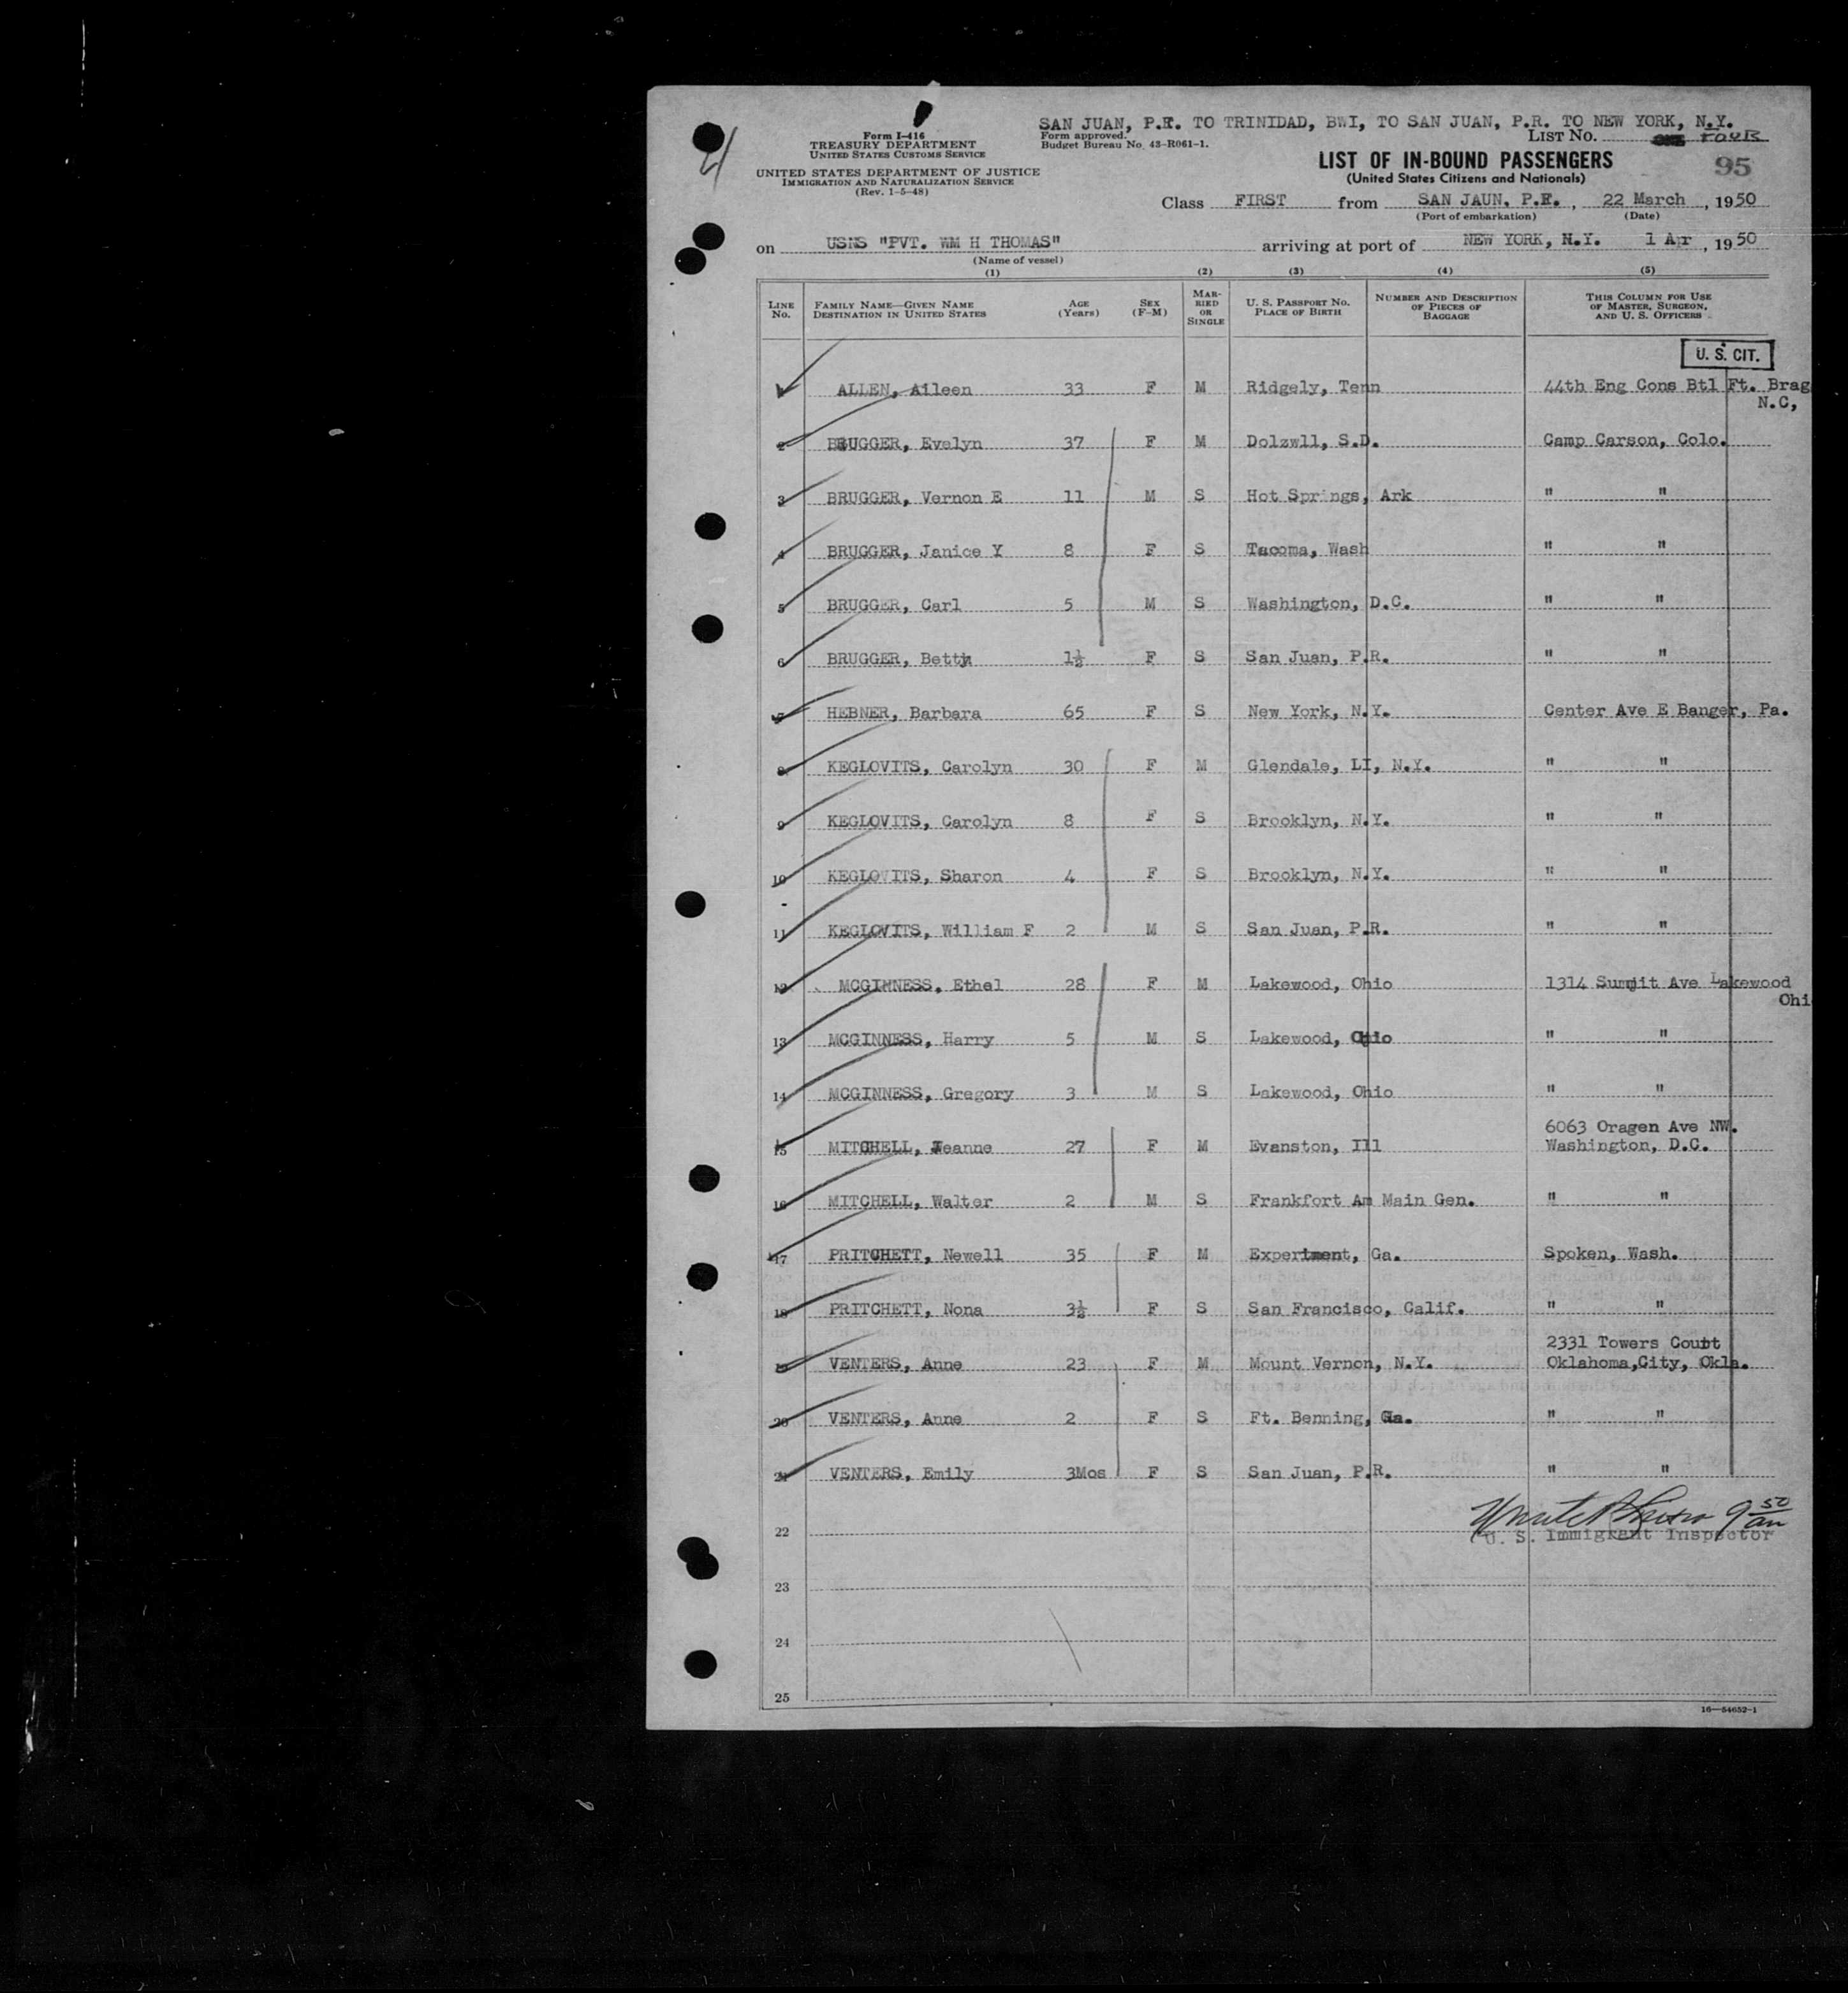 4
SAN JUAN, P.R. TO TRINIDAD, BWI, TO SAN JUAN, P.R. TO NEW YORK, N.Y.
Form I-416
TREASURY DEPARTMENT
UNITED STATES CUSTOMS SERVICE
UNITED STATES DEPARTMENT OF JUSTICE
IMMIGRATION AND NATURALIZATION SERVICE
(Rev. 1-5-48)
Form approved.
Budget Bureau No. 43-R061-1.
LIST No. FOUR
LIST OF IN-BOUND PASSENGERS
(United States Citizens and Nationals)
95
Class FIRST from SAN JAUN, P.R., 22 March, 1950
(Port of embarkation) (Date)
on USNS "PVT. WM H THOMAS" arriving at port of NEW YORK, N.Y. 1 Apr, 1950
(Name of vessel)
(1) (2) (3) (4) (5)
LINE No. FAMILY NAME—GIVEN NAME DESTINATION IN UNITED STATES AGE (Years) SEX (F-M) MARRIED OR SINGLE U. S. PASSPORT No. PLACE OF BIRTH NUMBER AND DESCRIPTION OF PIECES OF BAGGAGE THIS COLUMN FOR USE OF MASTER, SURGEON, AND U. S. OFFICERS
U. S. CIT.
ALLEN, Aileen 33 F M Ridgely, Tenn 44th Eng Cons Btl Ft. Brag
N.C,
2 BRUGGER, Evelyn 37 F M Dolzwll, S.D. Camp Carson, Colo.
3 BRUGGER, Vernon E 11 M S Hot Springs, Ark " "
4 BRUGGER, Janice Y 8 F S Tacoma, Wash " "
5 BRUGGER, Carl 5 M S Washington, D.C. " "
6 BRUGGER, Betty 1½ F S San Juan, P.R. " "
7 HEBNER, Barbara 65 F S New York, N.Y. Center Ave E Banger, Pa.
8 KEGLOVITS, Carolyn 30 F M Glendale, LI, N.Y. " "
9 KEGLOVITS, Carolyn 8 F S Brooklyn, N.Y. " "
10 KEGLOVITS, Sharon 4 F S Brooklyn, N.Y. " "
11 KEGLOVITS, William F 2 M S San Juan, P.R. " "
12 MCGINNESS, Ethel 28 F M Lakewood, Ohio 1314 Summit Ave Lakewood
Ohi
13 MCGINNESS, Harry 5 M S Lakewood, Ohio " "
14 MCGINNESS, Gregory 3 M S Lakewood, Ohio " "
6063 Oragen Ave NW.
15 MITCHELL, Jeanne 27 F M Evanston, Ill Washington, D.C.
16 MITCHELL, Walter 2 M S Frankfort Am Main Gen. " "
17 PRITCHETT, Newell 35 F M Experiment, Ga. Spoken, Wash.
18 PRITCHETT, Nona 3½ F S San Francisco, Calif. " "
2331 Towers Court
19 VENTERS, Anne 23 F M Mount Vernon, N.Y. Oklahoma,City, Okla.
20 VENTERS, Anne 2 F S Ft. Benning, Ga. " "
21 VENTERS, Emily 3Mos F S San Juan, P.R. " "
9 50 am
22 U. S. Immigrant Inspector
23
24
25
16—54652-1